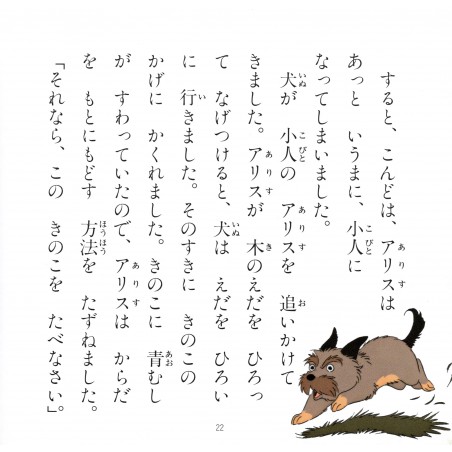 すると、こんどは、アリスは
あっと いうまに、小人に
なってしまいました。
犬が 小人の アリスを 追いかけて
きました。アリスが 木のえだを ひろっ
て なげつけると、犬は えだを ひろい
に 行きました。そのすきに きのこの
かげに かくれました。きのこに 青むし
が すわっていたので、アリスは からだ
を もとにもどす 方法を たずねました。
「それなら、この きのこを たべなさい」。
22